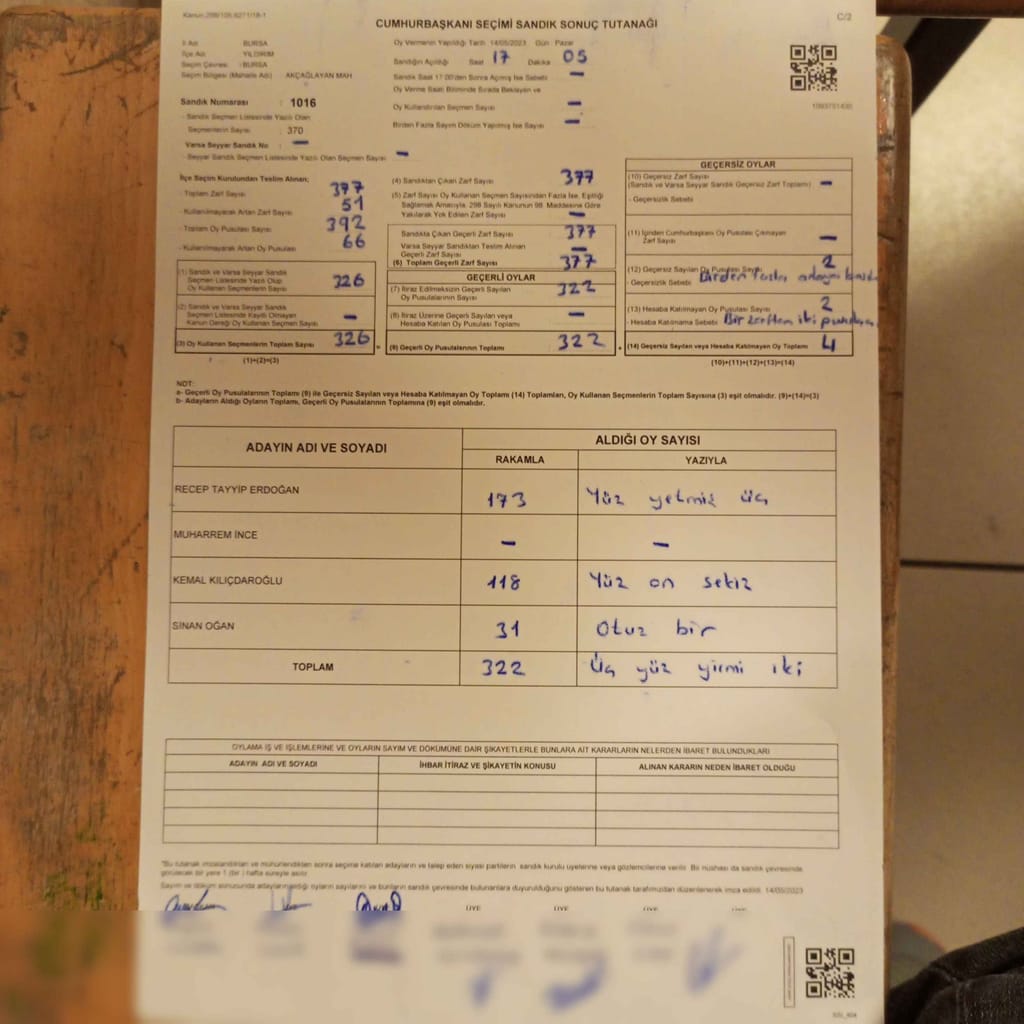 Kanun:298/105,6271/18-1
CUMHURBAŞKANI SEÇİMİ SANDIK SONUÇ TUTANAĞI
C/2
İl Adı : BURSA
İlçe Adı : YILDIRIM
Seçim Çevresi : BURSA
Seçim Bölgesi (Mahalle Adı) AKÇAĞLAYAN MAH
Oy Vermenin Yapıldığı Tarih 14/05/2023 Gün Pazar
Sandığın Açıldığı Saat 17 Dakika 05
Sandık Saat 17:00'den Sonra Açılmış İse Sebebi –
Oy Verme Saati Bitiminde Sırada Bekleyen ve
Oy Kullandırılan Seçmen Sayısı –
Birden Fazla Sayım Döküm Yapılmış İse Sayısı –
Sandık Numarası : 1016
- Sandık Seçmen Listesinde Yazılı Olan
Seçmenlerin Sayısı : 370
Varsa Seyyar Sandık No : –
- Seyyar Sandık Seçmen Listesinde Yazılı Olan Seçmen Sayısı : –
İlçe Seçim Kurulundan Teslim Alınan;
- Toplam Zarf Sayısı 377
- Kullanılmayacak Artan Zarf Sayısı 51
- Toplam Oy Pusulası Sayısı 392
- Kullanılmayarak Artan Oy Pusulası 66
(1) Sandık ve Varsa Seyyar Sandık
Seçmen Listesinde Yazılı Olup
Oy Kullanan Seçmen Sayısı 326
(2) Sandık ve Varsa Seyyar Sandık
Seçmen Listesinde Kayıtlı Olmayan
Kanun Gereği Oy Kullanan Seçmen Sayısı –
(3) Oy Kullanan Seçmenlerin Toplam Sayısı 326
(1)+(2)=(3)
(4) Sandıktan Çıkan Zarf Sayısı 377
(5) Zarf Sayısı Oy Kullanan Seçmen Sayısından Fazla İse, Eşitliği
Sağlamak Amacıyla, 298 Sayılı Kanunun 98. Maddesine Göre
Yakılarak Yok Edilen Zarf Sayısı –
Sandıkta Çıkan Geçerli Zarf Sayısı 377
Varsa Seyyar Sandıktan Teslim Alınan
Geçerli Zarf Sayısı –
(6) Toplam Geçerli Zarf Sayısı 377
GEÇERLİ OYLAR
(7) İtiraz Edilmeksizin Geçerli Sayılan
Oy Pusulalarının Sayısı 322
(8) İtiraz Üzerine Geçerli Sayılan veya
Hesaba Katılan Oy Pusulası Toplamı –
(9) Geçerli Oy Pusulalarının Toplamı 322
GEÇERSİZ OYLAR
(10) Geçersiz Zarf Sayısı
(Sandık ve Varsa Seyyar Sandık Geçersiz Zarf Toplamı) –
- Geçersizlik Sebebi
(11) İçinden Cumhurbaşkanı Oy Pusulası Çıkmayan
Zarf Sayısı –
(12) Geçersiz Sayılan Oy Pusulası Sayısı 2
- Geçersizlik Sebebi Birden fazla
(13) Hesaba Katılmayan Oy Pusulası Sayısı 2
- Hesaba Katılmama Sebebi Bir zarftan iki
(14) Geçersiz Sayılan veya Hesaba Katılmayan Oy Toplamı 4
(10)+(11)+(12)+(13)=(14)
NOT:
a- Geçerli Oy Pusulalarının Toplamı (9) ile Geçersiz Sayılan veya Hesaba Katılmayan Oy Toplamı (14) Toplamları, Oy Kullanan Seçmenlerin Toplam Sayısına (3) eşit olmalıdır. (9)+(14)=(3)
b- Adayların Aldığı Oyların Toplamı, Geçerli Oy Pusulalarının Toplamına (9) eşit olmalıdır.
ADAYIN ADI VE SOYADI ALDIĞI OY SAYISI
RAKAMLA YAZIYLA
RECEP TAYYİP ERDOĞAN 173 Yüz yetmiş üç
MUHARREM İNCE – –
KEMAL KILIÇDAROĞLU 118 Yüz on sekiz
SİNAN OĞAN 31 Otuz bir
TOPLAM 322 Üç yüz yirmi iki
OYLAMA İŞ VE İŞLEMLERİNE VE OYLARIN SAYIM VE DÖKÜMÜNE DAİR ŞİKAYETLERLE BUNLARA AİT KARARLARIN NELERDEN İBARET BULUNDUKLARI
ADAYIN ADI VE SOYADI İHBAR İTİRAZ VE ŞİKAYETİN KONUSU ALINAN KARARIN NEDEN İBARET OLDUĞU
*Bu tutanak imzalandıktan ve mühürlendikten sonra seçime katılan adayların ve talep eden siyasi partilerin sandık kurulu üyelerine veya gözlemcilerine verilir. Bir nüshası da sandık çevresinde
görülecek bir yere 1 (bir) hafta süreyle asılır.
Sayım ve döküm sonucunda adayların aldığı oyların sayılarını ve bunların sandık çevresinde bulunanlara duyurulduğunu gösteren bu tutanak tarafımızdan düzenlenerek imza edildi. 14/05/2023
ÜYE ÜYE ÜYE ÜYE